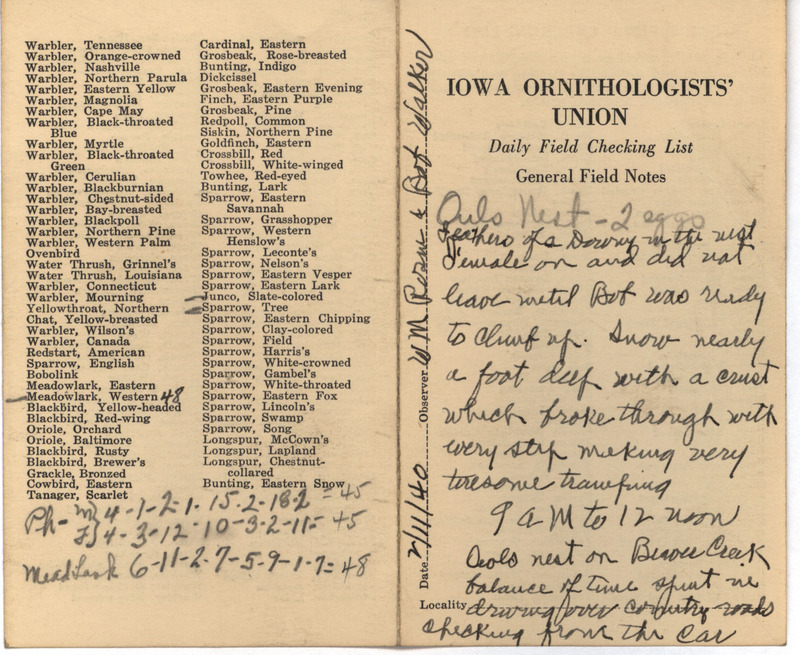 Warbler, Tennessee
Warbler, Orange-crowned
Warbler, Nashville
Warbler, Northern Parula
Warbler, Eastern Yellow
Warbler, Magnolia
Warbler, Cape May
Warbler, Black-throated
Blue
Warbler, Myrtle
Warbler, Black-throated
Green
Warbler, Cerulian
Warbler, Blackburnian
Warbler, Chestnut-sided
Warbler, Bay-breasted
Warbler, Blackpoll
Warbler, Northern Pine
Warbler, Western Palm
Ovenbird
Water Thrush, Grinnel's
Water Thrush, Louisiana
Warbler, Connecticut
Warbler, Mourning
Yellowthroat, Northern
Chat, Yellow-breasted
Warbler, Wilson's
Warbler, Canada
Redstart, American
Sparrow, English
Bobolink
Meadowlark, Eastern
Meadowlark, Western 48
Blackbird, Yellow-headed
Blackbird, Red-wing
Oriole, Orchard
Oriole, Baltimore
Blackbird, Rusty
Blackbird, Brewer's
Grackle, Bronzed
Cowbird, Eastern
Tanager, Scarlet
Cardinal, Eastern
Grosbeak, Rose-breasted
Bunting, Indigo
Dickcissel
Grosbeak, Eastern Evening
Finch, Eastern Purple
Grosbeak, Pine
Redpoll, Common
Siskin, Northern Pine
Goldfinch, Eastern
Crossbill, Red
Crossbill, White-winged
Towhee, Red-eyed
Bunting, Lark
Sparrow, Eastern
Savannah
Sparrow, Grasshopper
Sparrow, Western
Henslow's
Sparrow, Leconte's
Sparrow, Nelson's
Sparrow, Eastern Vesper
Sparrow, Eastern Lark
Junco, Slate-colored
Sparrow, Tree
Sparrow, Eastern Chipping
Sparrow, Clay-colored
Sparrow, Field
Sparrow, Harris's
Sparrow, White-crowned
Sparrow, Gambel's
Sparrow, White-throated
Sparrow, Eastern Fox
Sparrow, Lincoln's
Sparrow, Swamp
Sparrow, Song
Longspur, McCown's
Longspur, Lapland
Longspur, Chestnut-
collared
Bunting, Eastern Snow
Ph- M 4-1-2-1-15-2-18-2=45
F 4-3-12-10-3-2-11=45
Meadlark 6-11-2-7-5-9-1-7=48
Date 2/11/40 Observer W M Rosene & Bob Walker
IOWA ORNITHOLOGISTS'
UNION
Daily Field Checking List
General Field Notes
Owls Nest - 2 eggs
Feathers of a Downy in the nest
Female on and did not
leave until Bob was ready
to climb up. Snow nearly
a foot deep with a crust
which broke through with
every step making very
tiresome tramping
9 AM to 12 noon
Owls nest on Beaver Creek
balance of time spent in
Locality driving over country roads
checking from the car